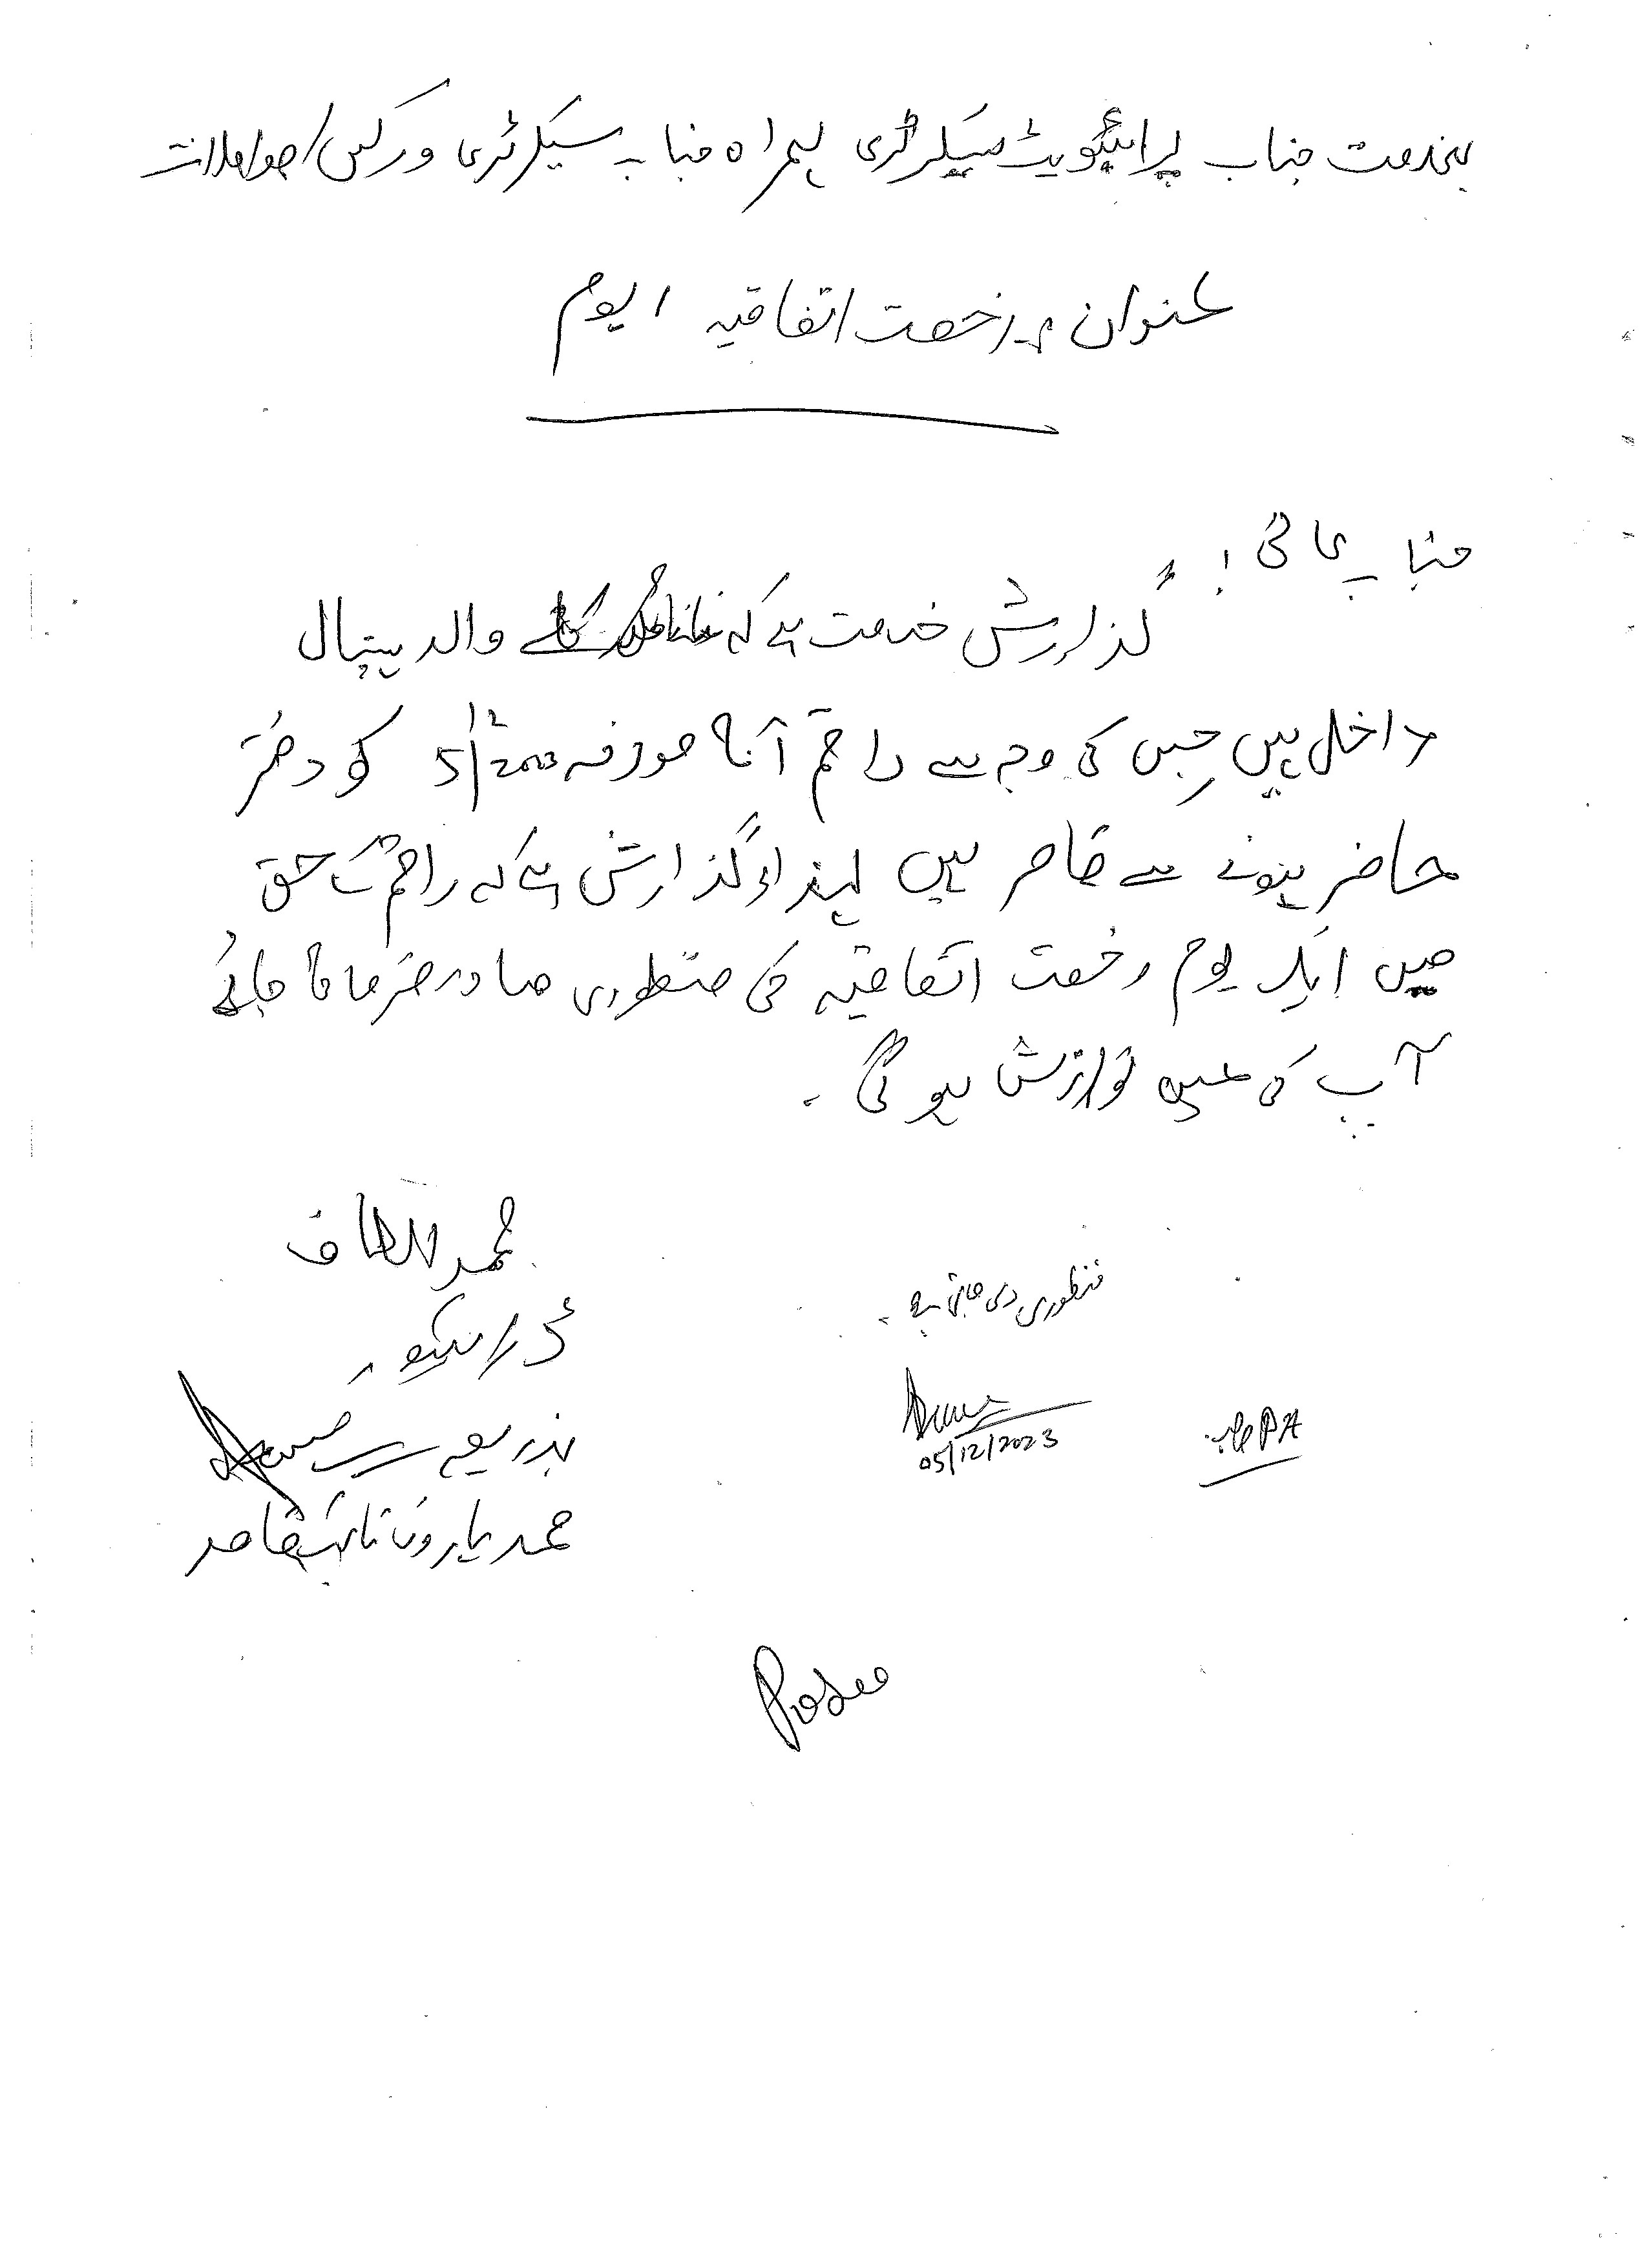 بخدمت جناب پرائیویٹ سیکرٹری ہمراہ جناب سیکرٹری ورکس/مواصلات
عنوان :۔ رخصت اتفاقیہ 1 یوم
جناب عالی !
گذارش خدمت ہے کہ والد ہسپتال
داخل ہیں جس کی وجہ سے راقم آج مورخہ 5/12/2023 کو دفتر
حاضر ہونے سے قاصر ہیں لہذا گذارش ہے کہ راقم کے حق
میں ایک یوم رخصت اتفاقیہ کی منظوری صادر فرمائی جائے
آپ کی عین نوازش ہو گی ۔
محمد الطاف
ڈرائیور
بذریعہ
محمد ہارون نائب قاصد
منظوری دی جاتی ہے۔
05/12/2023
PA صاحب